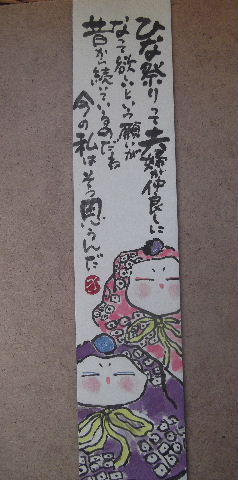 ひな祭りって夫婦が仲良しに
なって欲しいという願いが
昔から続いているのだね
今の私はそう思うんだ